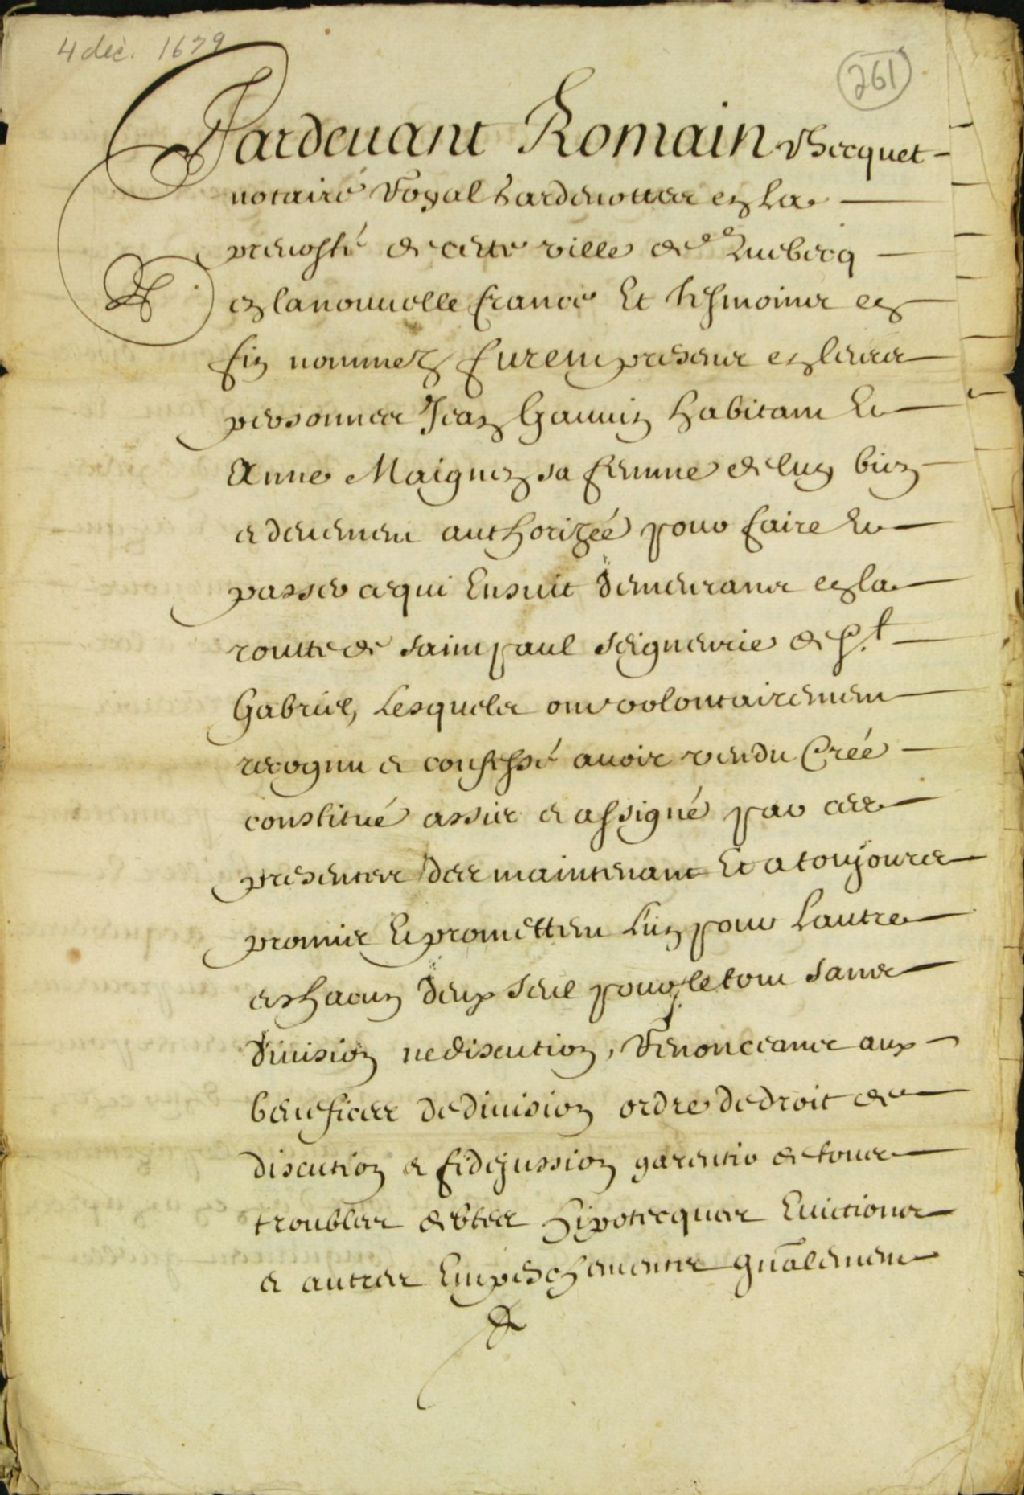 4 dec. 1679
261
Pardeuant Romain Becquet
notaire Royal gardenottes en la
preuosté de cette ville de Quebecq
en la nouuelle france Et tesmoins en
fin nommez furent presens en leurs
personnes Jean Gauuin habitant Et
Anne Maignen sa femme de luy bien
et deuement authorizée pour faire et
passer ce qui Ensuit demeurans en la
routte de saint paul seigneurie de St
Gabriel, Lesquels ont volontairement
recognu et confessé auoir vendu Créé
constitué assis et assigné par ces
presentes des maintenant Et a toujours
promis Et promettent L'un pour Lautre
et chacun deux seul pour le tout sans
diuision ne discution, Renonceans aux
benefices de diuision ordre de droit de
discution et fidejussion garentir de tous
troubles debtes hipotecques Euictions
et autres Empeschements gnalement